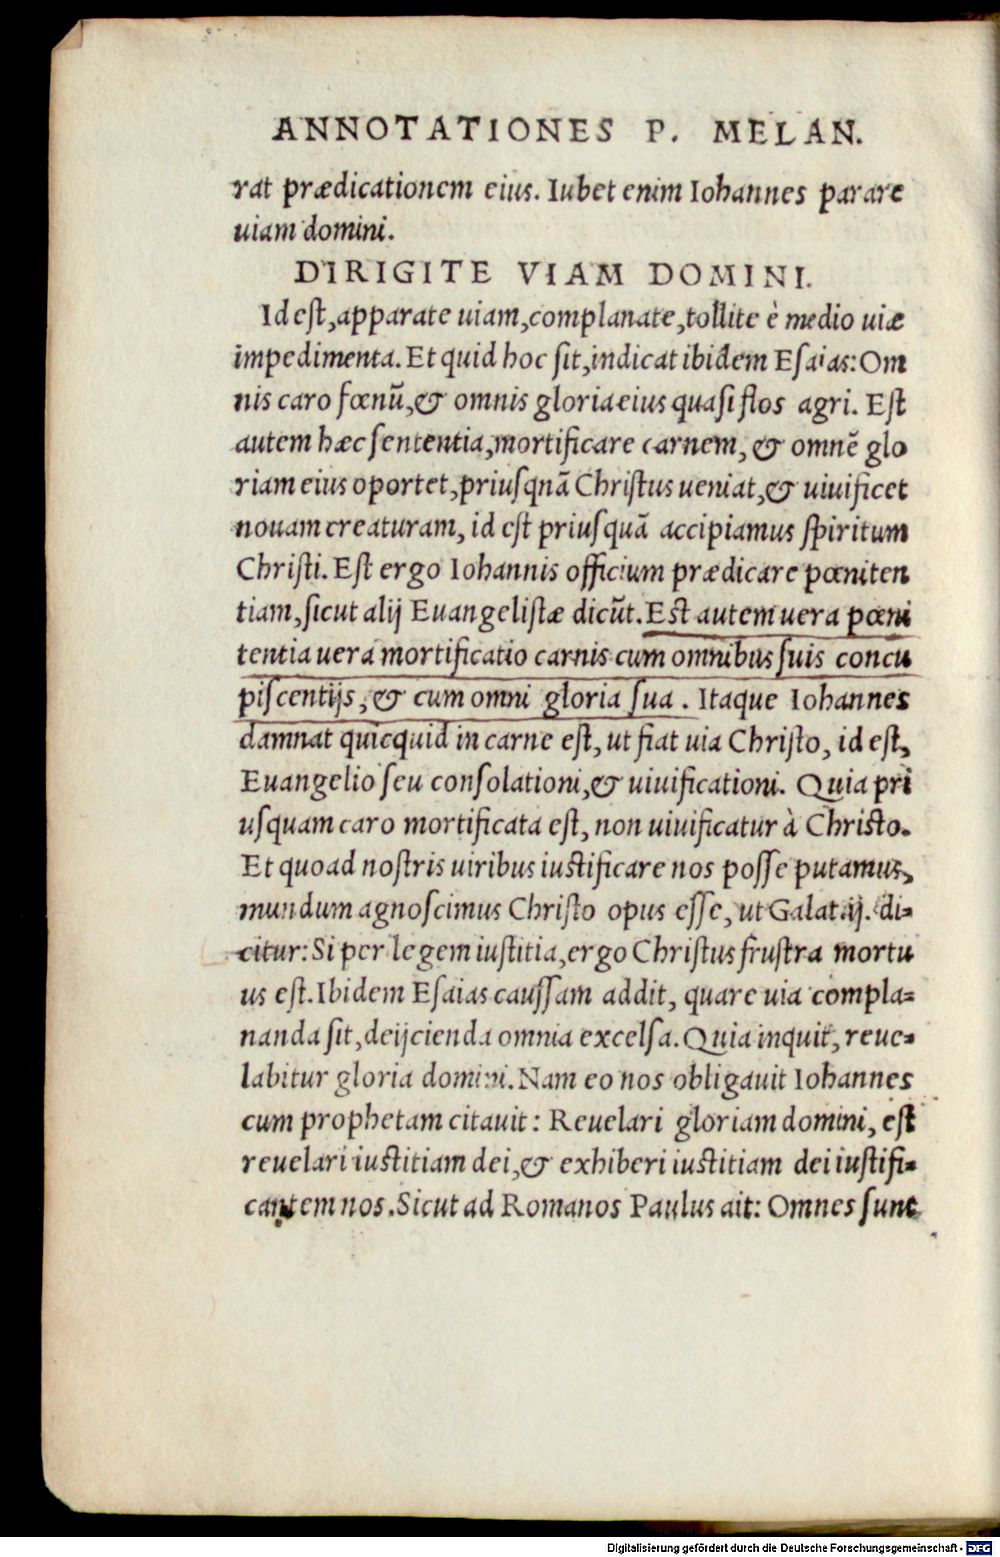 ANNOTATIONES P. MELAN.
rat prædicationem eius. Iubet enim Iohannes parare
uiam domini.
DIRIGITE VIAM DOMINI.
Id eſt, apparate uiam, complanate, tollite è medio uiæ
impedimenta. Et quid hoc ſit, indicat ibidem Eſaias: Om
nis caro fœnũ, & omnis gloria eius quaſi flos agri. Eſt
autem hæc ſententia, mortificare carnem, & omnẽ glo
riam eius oportet, priuſqnã Chriſtus ueniat, & uiuificet
nouam creaturam, id eſt priuſquã accipiamus ſpiritum
Chriſti. Eſt ergo Iohannis officium prædicare pœniten
tiam, ſicut alij Euangeliſtæ dicũt. Eſt autem uera pœni
tentia uera mortificatio carnis cum omnibus ſuis concu
piſcentijs, & cum omni gloria ſua. Itaque Iohannes
damnat quicquid in carne eſt, ut fiat uia Chriſto, id eſt,
Euangelio ſeu conſolationi, & uiuificationi. Quia pri
uſquam caro mortificata eſt, non uiuificatur à Chriſto.
Et quoad noſtris uiribus iuſtificare nos poſſe putamus,
mundum agnoſcimus Chriſto opus eſſe, ut Galat.ij. di-
citur: Si per legem iuſtitia, ergo Chriſtus fruſtra mortu
us eſt. Ibidem Eſaias cauſſam addit, quare uia compla-
nanda ſit, deijcienda omnia excelſa. Quia inquit, reue-
labitur gloria domini. Nam eo nos obligauit Iohannes
cum prophetam citauit: Reuelari gloriam domini, eſt
reuelari iuſtitiam dei, & exhiberi iuſtitiam dei iuſtifi-
cantem nos. Sicut ad Romanos Paulus ait: Omnes ſunt
Digitalisierung gefördert durch die Deutsche Forschungsgemeinschaft - DFG